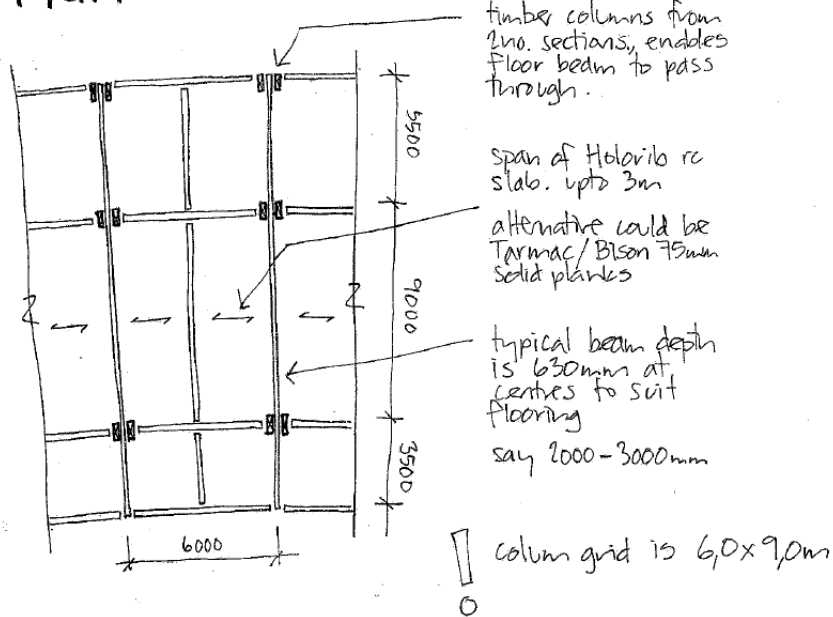 Plan
timber columns from
2no. sections, enables
floor beam to pass
through.
5500
span of Holorib rc
slab. upto 3m
alternative could be
Tarmac/Bison 75mm
solid planks
9000
typical beam depth
is 630mm at
centres to suit
flooring
say 2000-3000mm
3500
6000
! colum grid is 6,0x9,0m